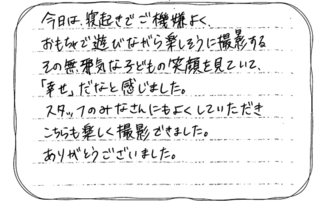 今日は、寝起きでご機嫌よく
おもちゃで遊びながら楽しそうに撮影する
その無邪気な子どもの笑顔を見ていて、
「幸せ」だなと感じました。
スタッフのみなさんにもよくしていただき
こちらも楽しく撮影できました。
ありがとうございました。